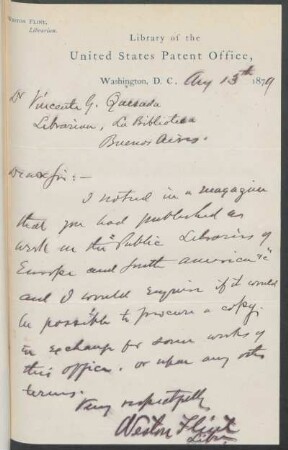 WESTON FLINT,
Librarian.
Library of the
United States Patent Office,
Washington, D. C. Aug 13th 1879
Dr Vincente G. Quesada
Librarian, La Biblioteca
Buenos Aires.
Dear Sir:-
I noticed in a magazine
that you had published a
work on the "Public Libraries of
Europe and South America" &c
and I would enquire if it would
be possible to procure a copy,
in exchange for some works of
this office, or upon any other
terms.
Very respectfully
Weston Flint
Libn